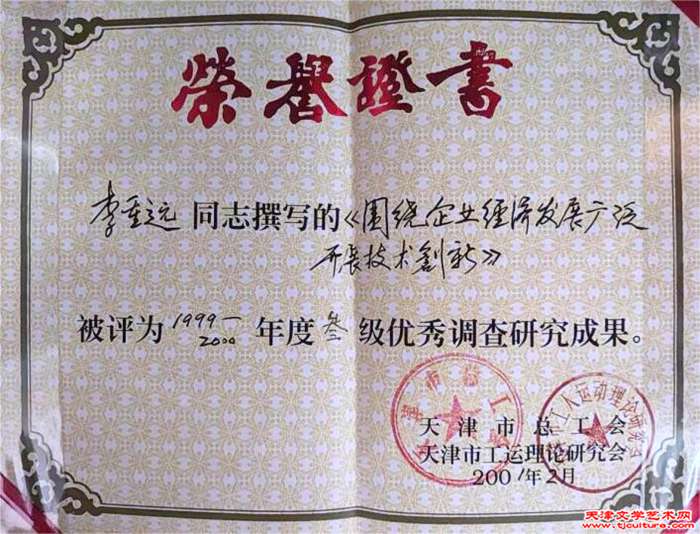 榮譽證書
李重远同志撰写的《围绕企业经济发展广泛
开展技术創新》
被评为1999—2000年度叁级优秀调查研究成果。
天津市总工会
天津市工运理论研究会
2001年2月
天津市总工会
工人运动理论研究会
天津文学艺术网
www.tjculture.com